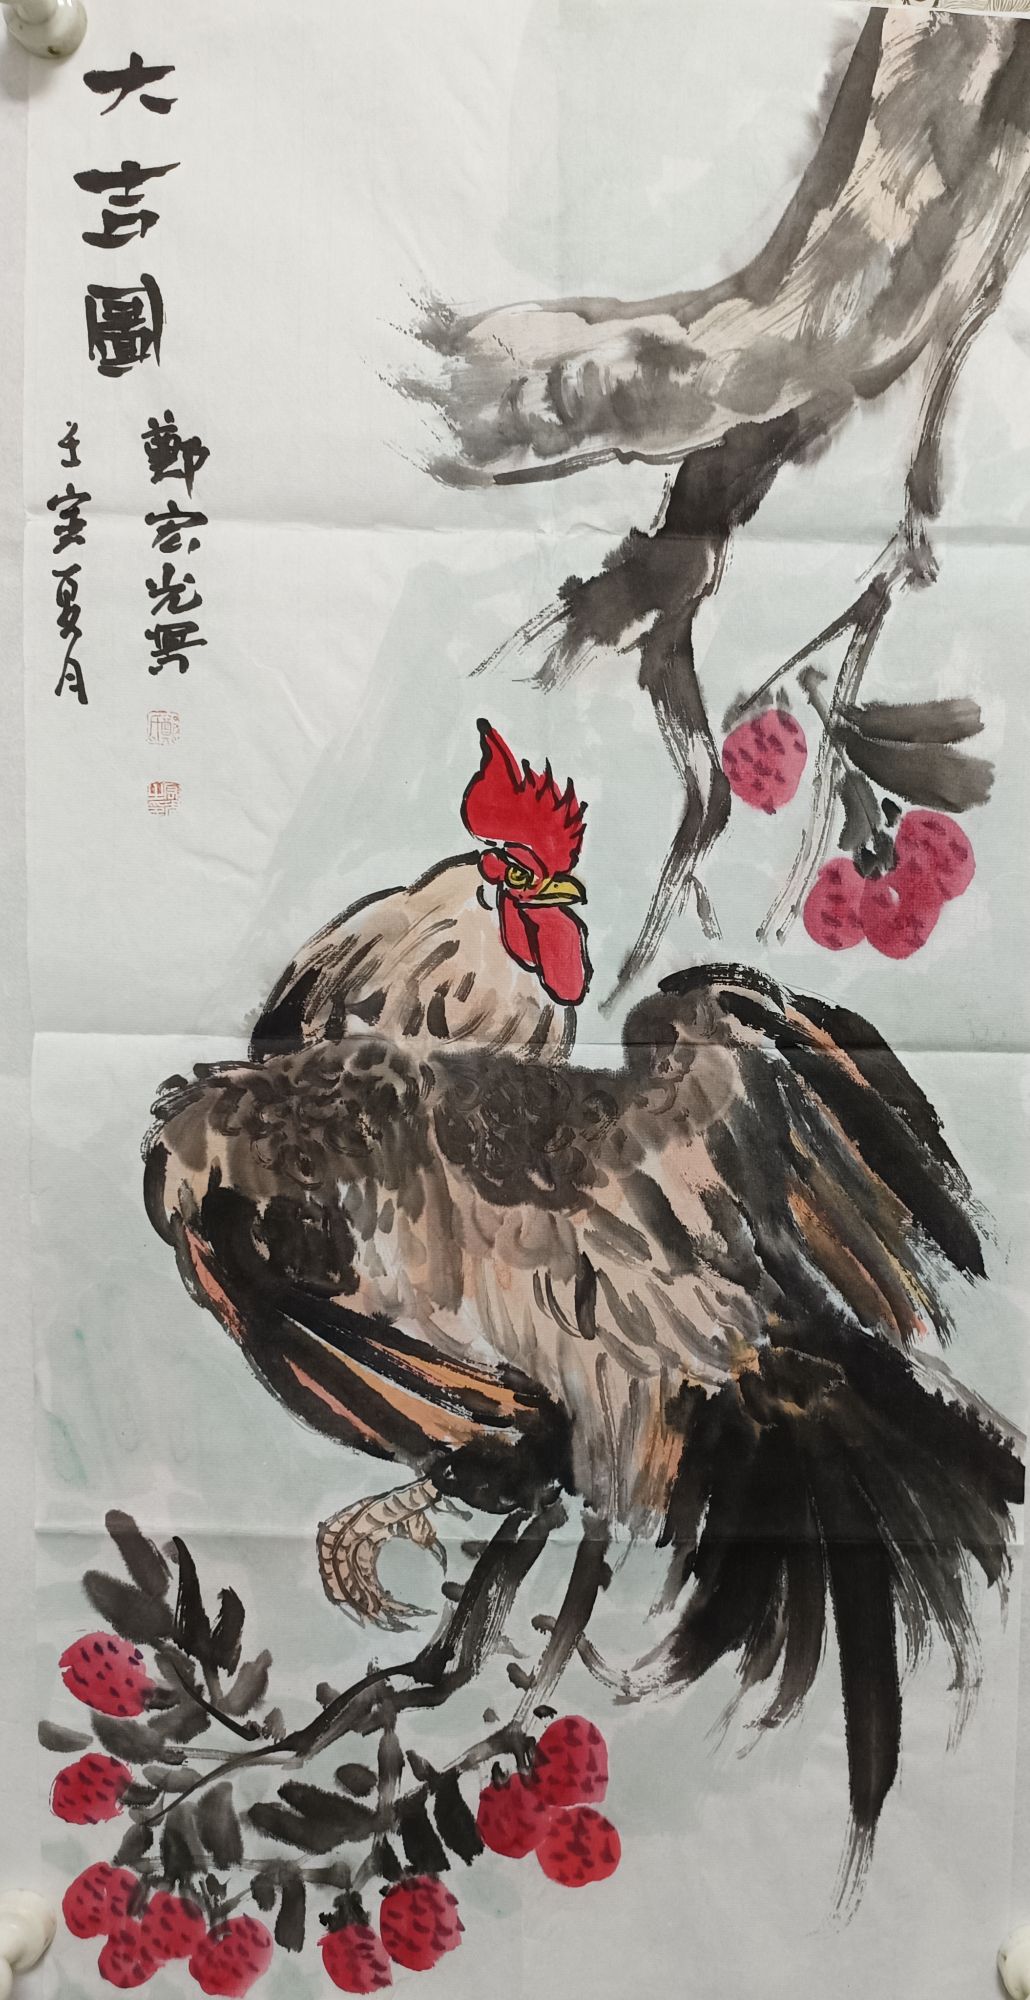 大吉圖
鄭宗光寫
壬寅夏月